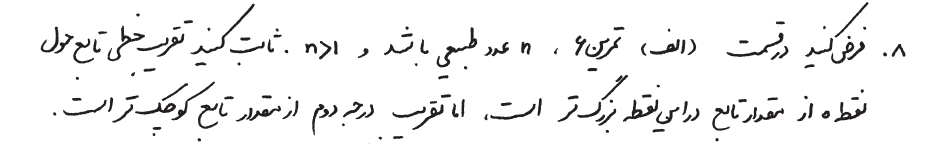 ۸. فرض کنید در قسمت (الف) تمرین ۶، n عدد طبیعی باشد و n>1. ثابت کنید تقریب خطی تابع حول
نقطه ۰ از مقدار تابع در این نقطه بزرگ‌تر است، اما تقریب درجه دوم از مقدار تابع کوچک‌تر است.